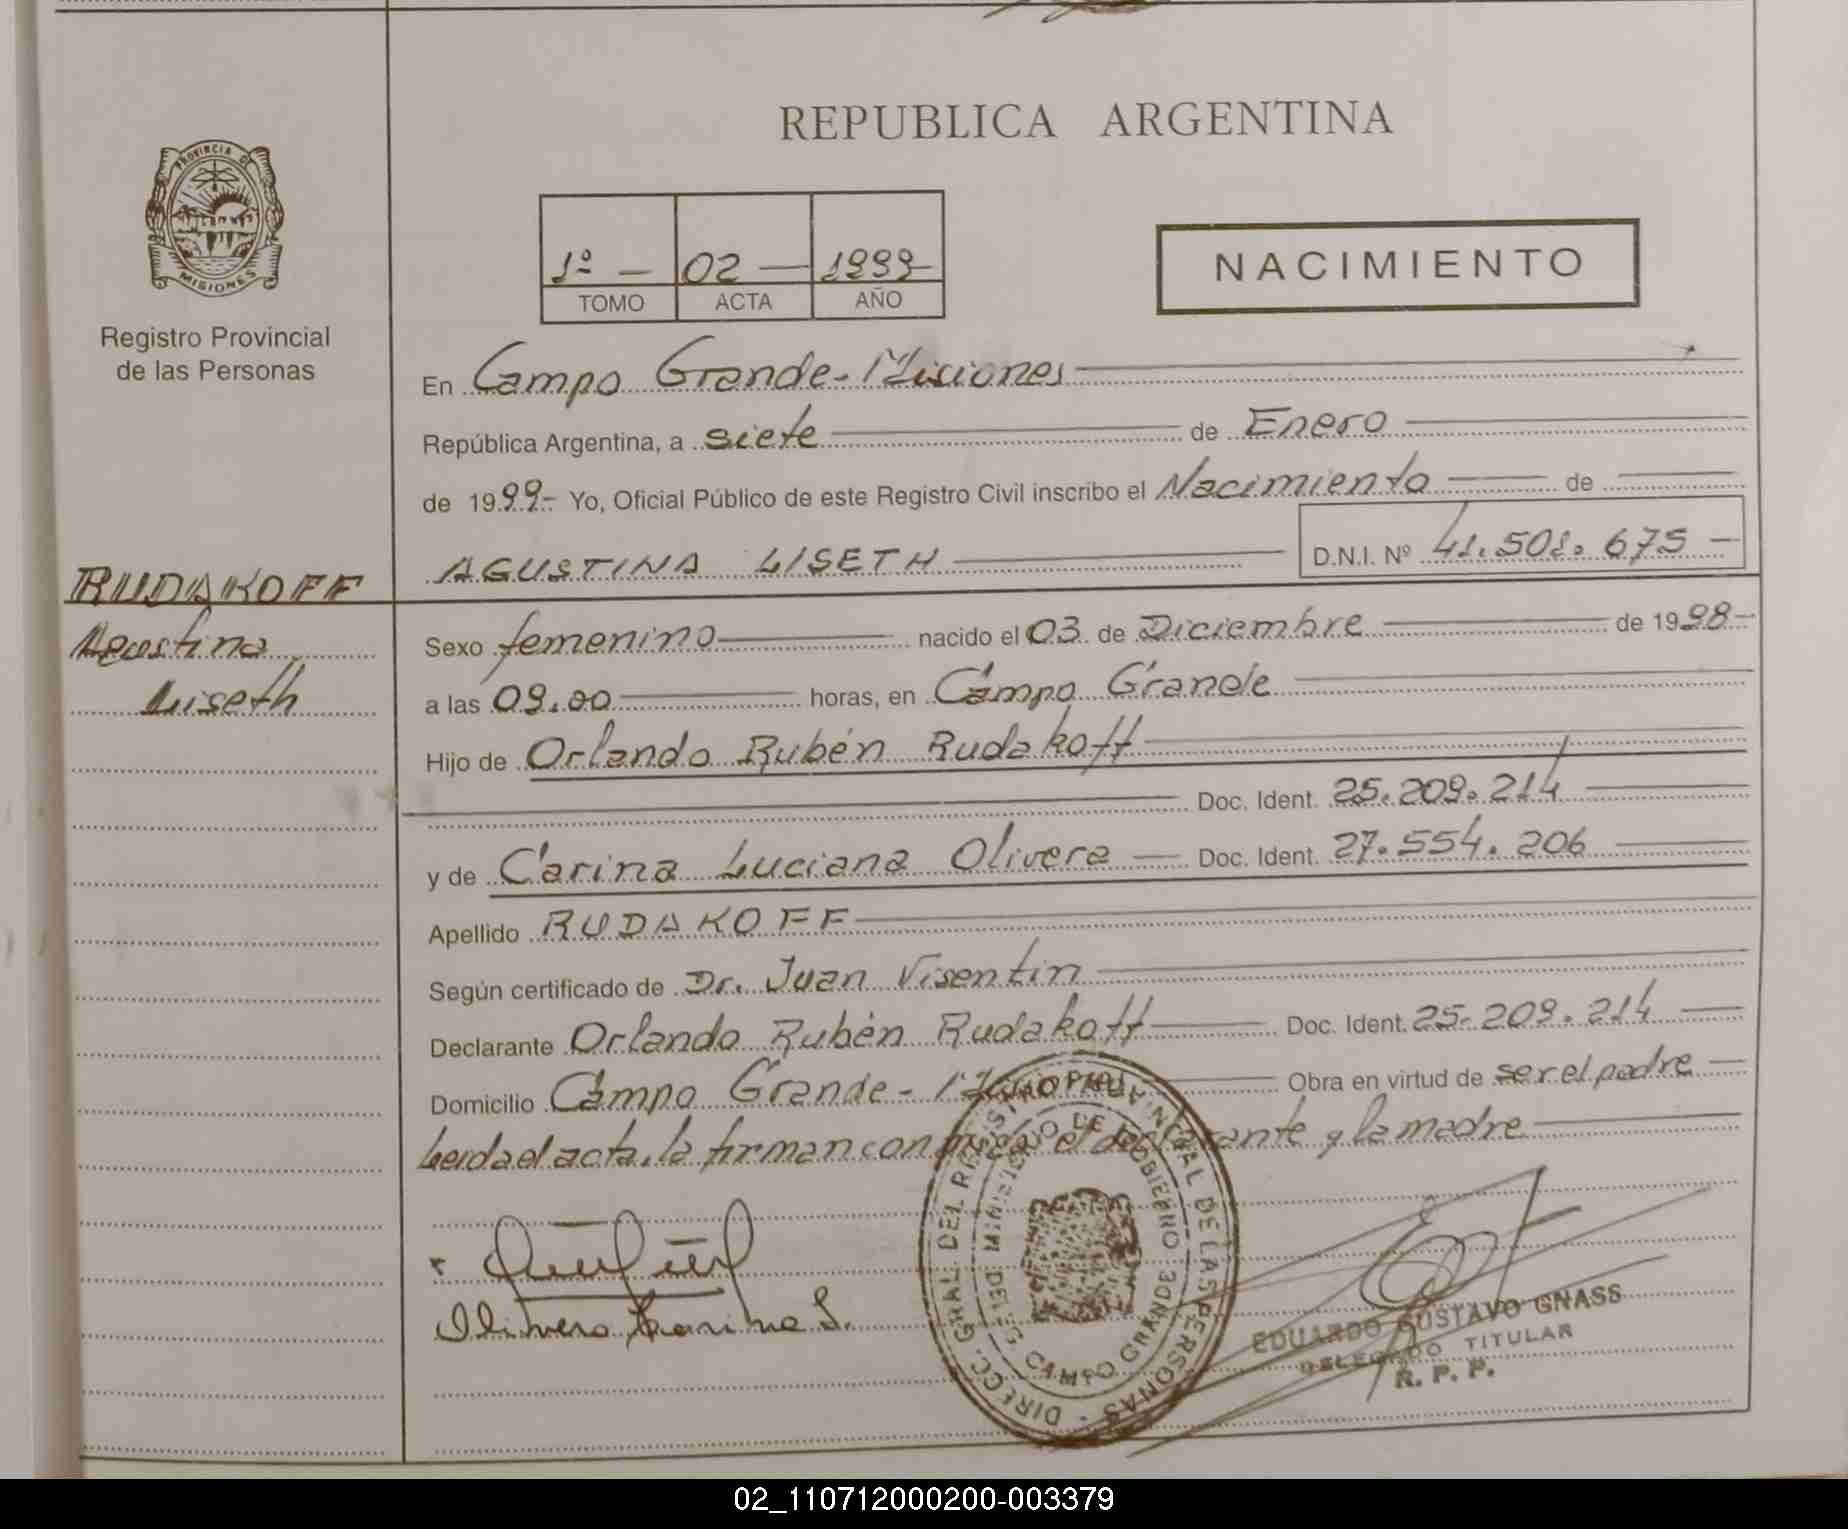 REPUBLICA ARGENTINA
PROVINCIA DE
MISIONES
Registro Provincial
de las Personas
1º - 02 - 1999-
TOMO ACTA AÑO
NACIMIENTO
En Campo Grande - Misiones
República Argentina, a siete de Enero
de 1999- Yo, Oficial Público de este Registro Civil inscribo el Nacimiento de
AGUSTINA LISETH D.N.I. Nº 41.501.675 -
RUDAKOFF
Agustina
Liseth
Sexo femenino nacido el 03 de Diciembre de 1998-
a las 09.00 horas, en Campo Grande
Hijo de Orlando Rubén Rudakoff
Doc. Ident. 25.209.214
y de Carina Luciana Olivera - Doc. Ident. 27.554.206
Apellido RUDAKOFF
Según certificado de Dr. Juan Visentin
Declarante Orlando Rubén Rudakoff Doc. Ident. 25.209.214
Domicilio Campo Grande - Obra en virtud de ser el padre
Leida el acta, la firman conmigo el declarante y la madre
Olivera Carina L.
DIRECC. GRAL. DEL REGISTRO PROVINCIAL DE LAS PERSONAS -
MINISTERIO DE GOBIERNO
CAMPO GRANDE
EDUARDO GUSTAVO GNASS
DELEGADO TITULAR
R. P. P.
02_110712000200-003379